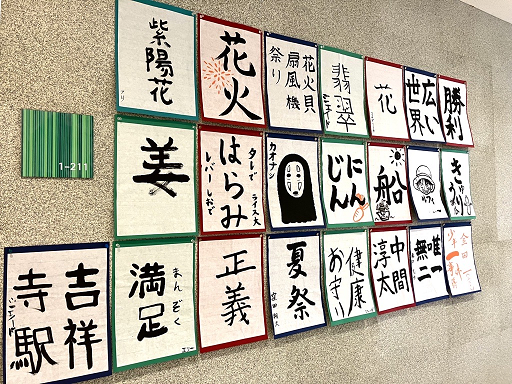 紫陽花
花火
花火貝
扇風機
祭り
翡翠
花
広い
世界
勝利
1-211
姜
はらみ
ライス大
タレで
レバーしおで
カオナシ
にん
じん
船
吉祥
寺駅
満足
まんぞく
正義
夏祭
健康
お守り
中間
淳太
唯一
無二
金田一